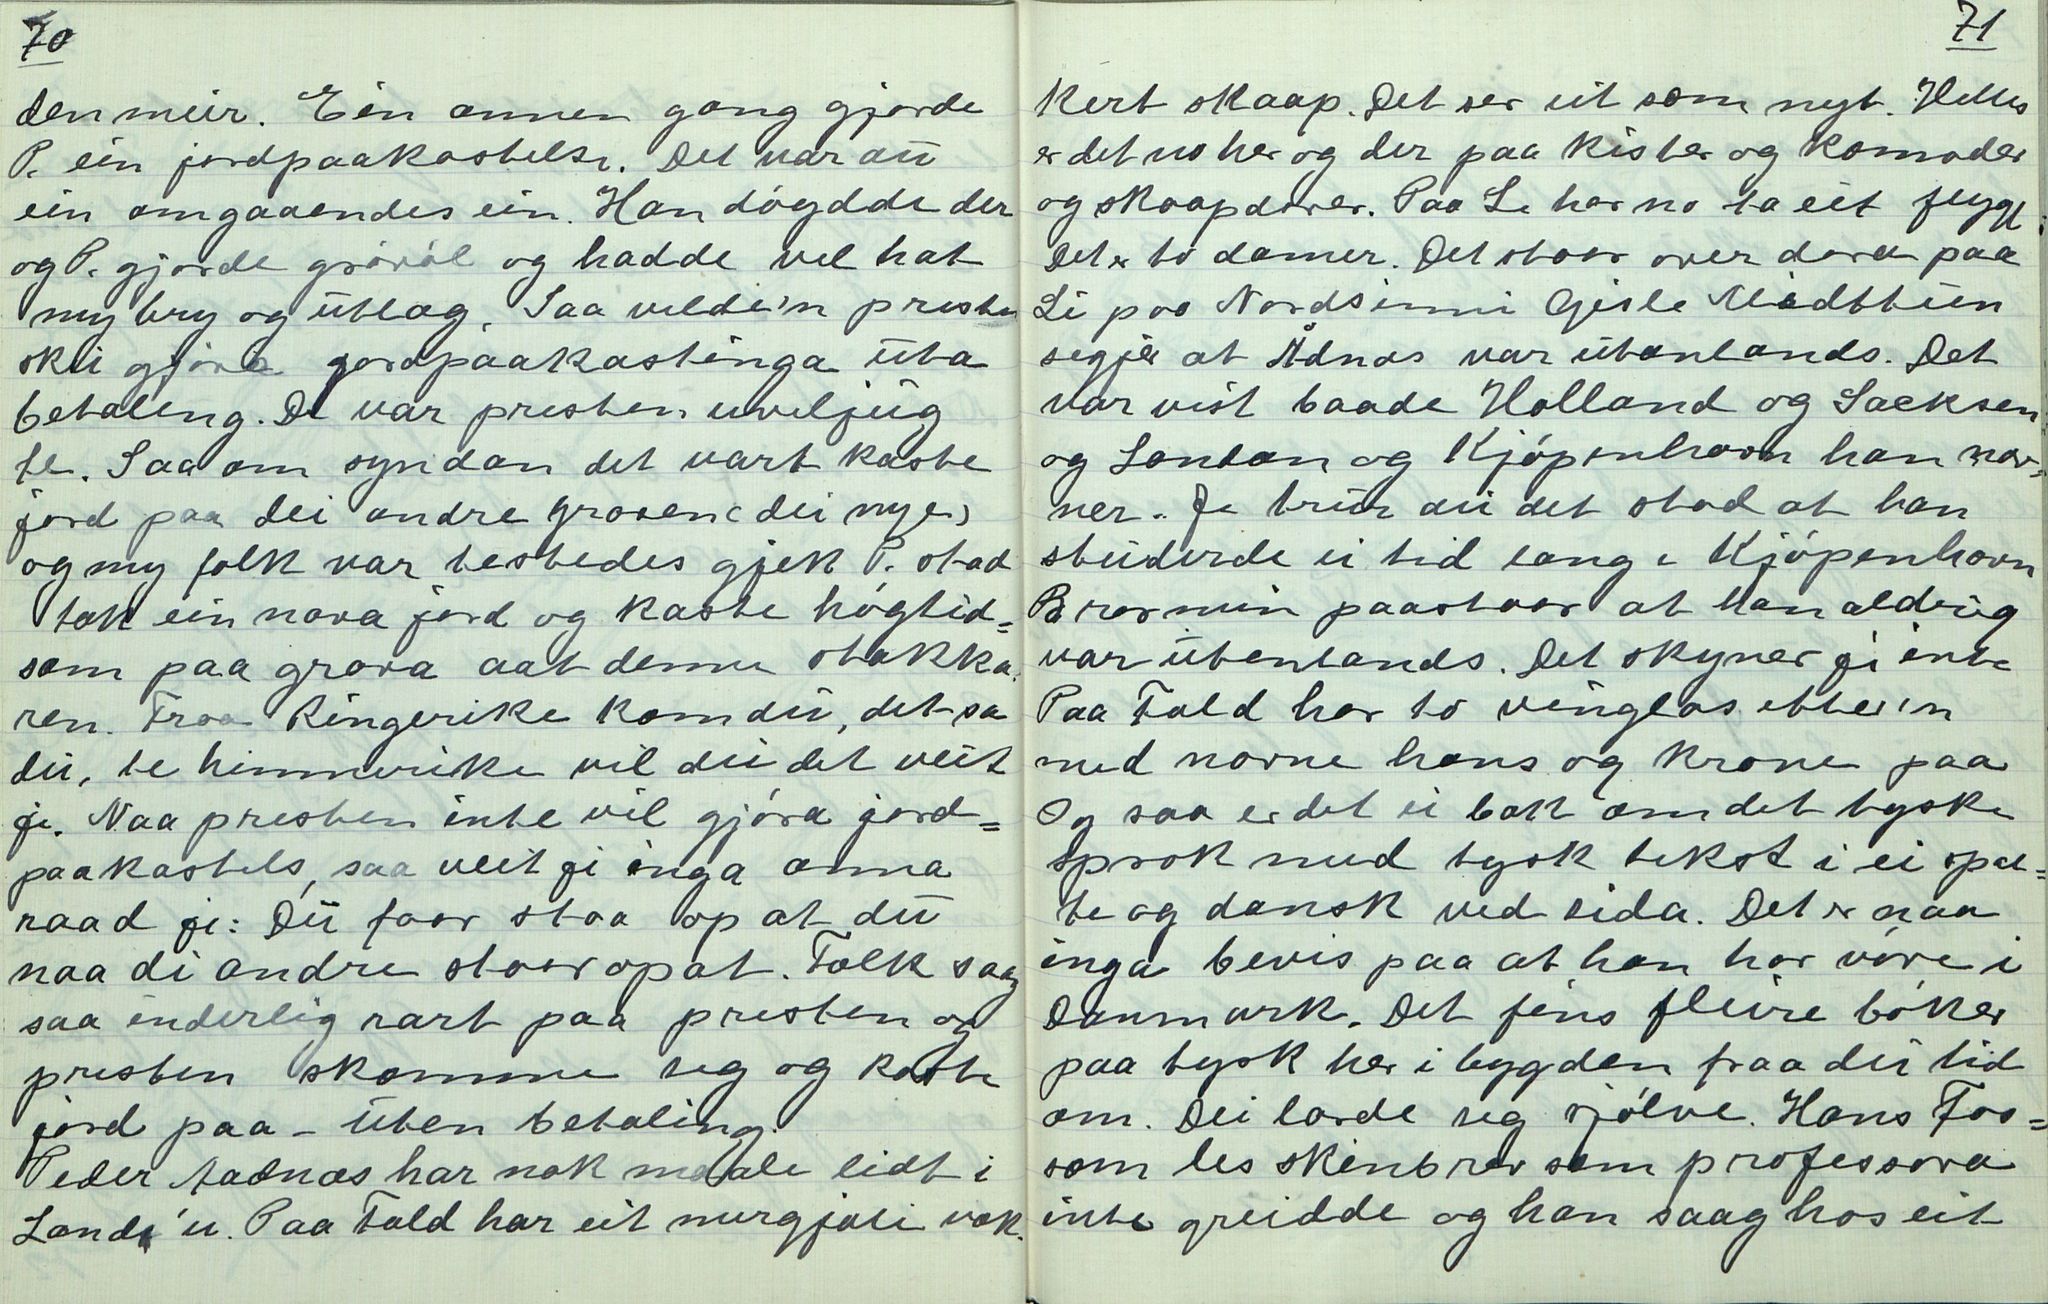 70
den meir. Ein annen gang gjorde
P. ein jordpaakastelse. Det var au
ein omgaaendes ein. Han døydde der
og P. gjorde gravøl og hadde vel hat
my bry og utlæg. Saa vilde'n presten
sku gjøra jordpaakastinga uta
betaling. De var presten uviljug
te. Saa om syndan det vart kaste
jord paa dei andre graven (dei nye)
og my folk var testedes gjek P. stad
tok ein nava jord og kaste høgtid=
som paa grava aat denne stakka.
ren. Fraa Ringerike kom du, det sa
du, te himmerike vil du det veit
je. Naa presten inte vil gjøra jord=
paakastels, saa veit je inga anna
raad je: Du faar staa op at du
naa di andre staar op at. Folk saag
saa inderlig rart paa presten og
presten skamme seg og kaste
jord paa - uten betaling.
Peder Aadnæs har nok maale lidt i
Landi 'u. Paa Fald har eit nurgjøli vak.
71
kert skaap. Det ser ut som nyt. Helles
er det no her og der paa kister og komoder
og skaapdører. Paa Li har no ta eit flygl.
Det er to damer. Det staar over døra paa
Li paa Nordsinni Gisle Midttun
segjer at Ådnæs var utanlands. Det
var vist baade Holland og Sacksen
og London og Kjøpenhavn han nev=
ner. Je trur au det stod at han
studerde ei tid lang i Kjøpenhavn
Bror min paastaar at han aldrig
var utenlands. Det skyner je inte
Paa Fald har to vinglas etter'n
med navne hans og krone paa
Og saa er det ei bok om det tyske
sprok med tysk tekst i ei spal=
te og dansk ved sida. Det er naa
inga bevis paa at han har vøre i
Danmark. Det fins fleire bøker
paa tysk her i bygden fraa dei tid
om. Dei lærde seg sjølve. Hans Fos=
som les skinbrev som professora
inte greidde og han saag hos eit